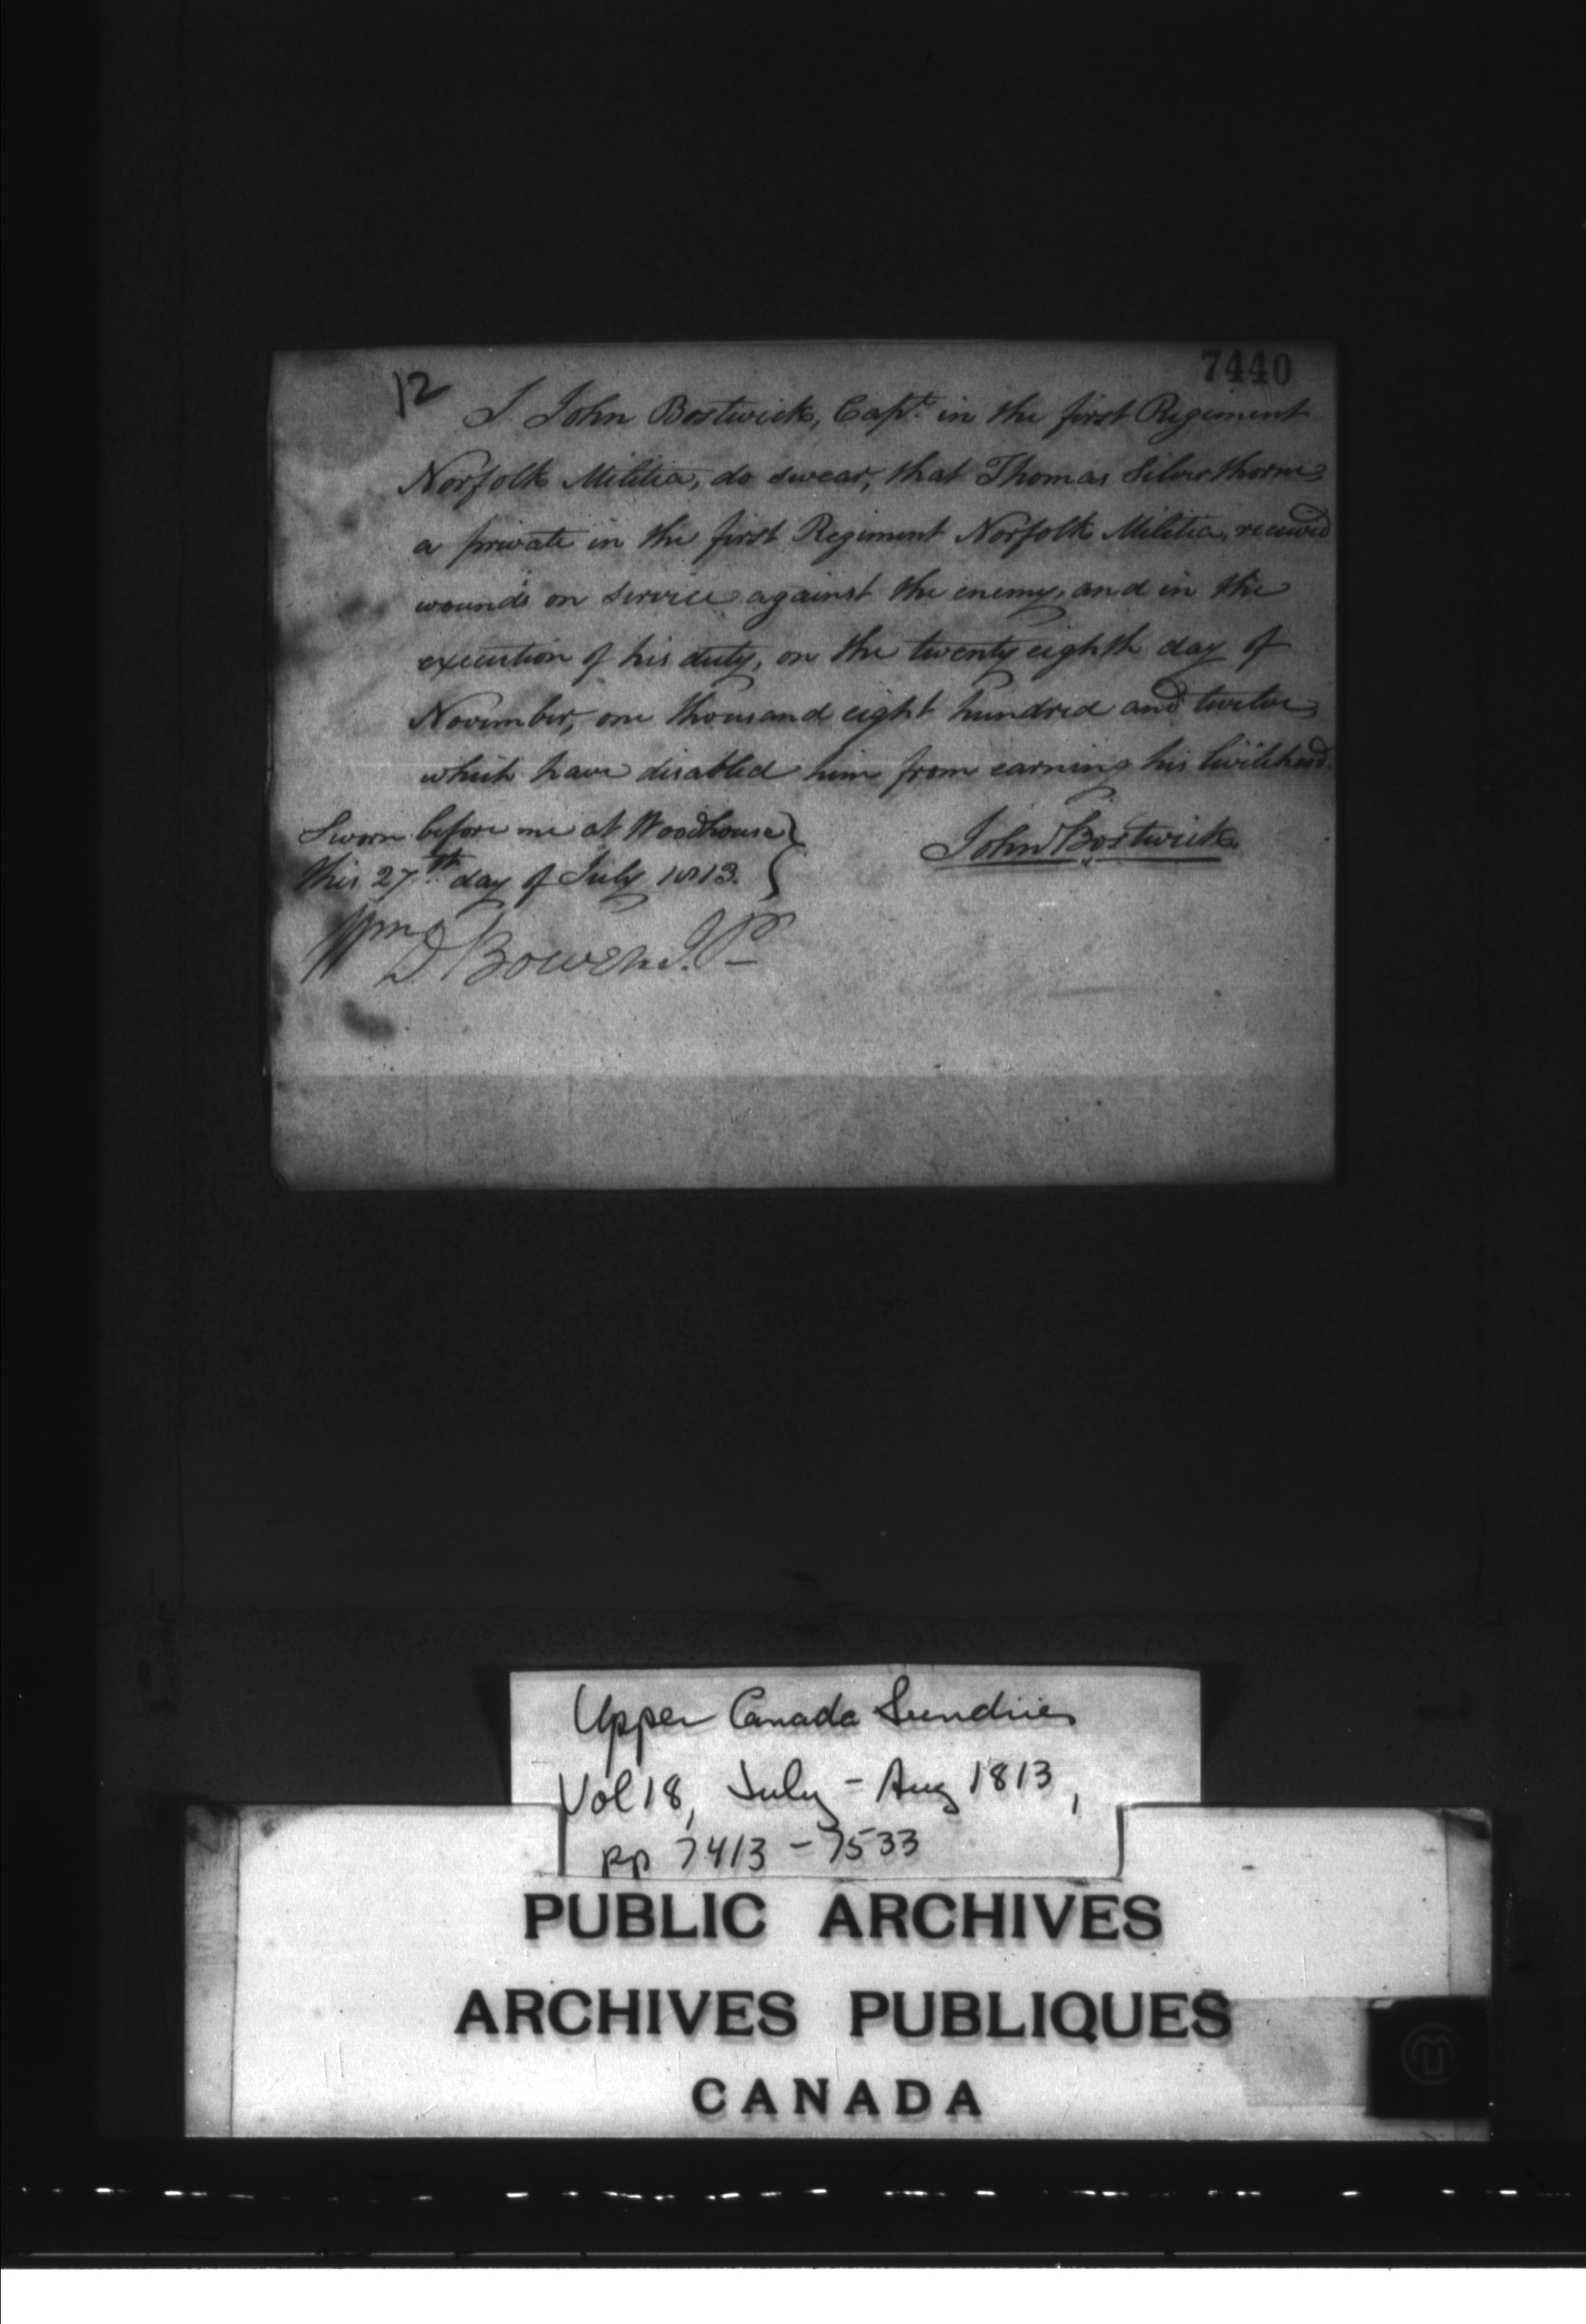 7440
12
I John Bostwick, Capt. in the first Regiment
Norfolk Militia, do swear, that Thomas Silverthorne
a private in the first Regiment Norfolk Militia, received
wounds on service against the enemy, and in the
execution of his duty, on the twenty eighth day of
November, one thousand eight hundred and twelve
which have disabled him from earning his livelihood.
Sworn before me at Woodhouse
this 27th day of July 1813.
John Bostwick
Wm D Bowen J. P
Upper Canada Sundries
Vol 18, July - Aug 1813,
pp 7413 - 7533
PUBLIC ARCHIVES
ARCHIVES PUBLIQUES
CANADA